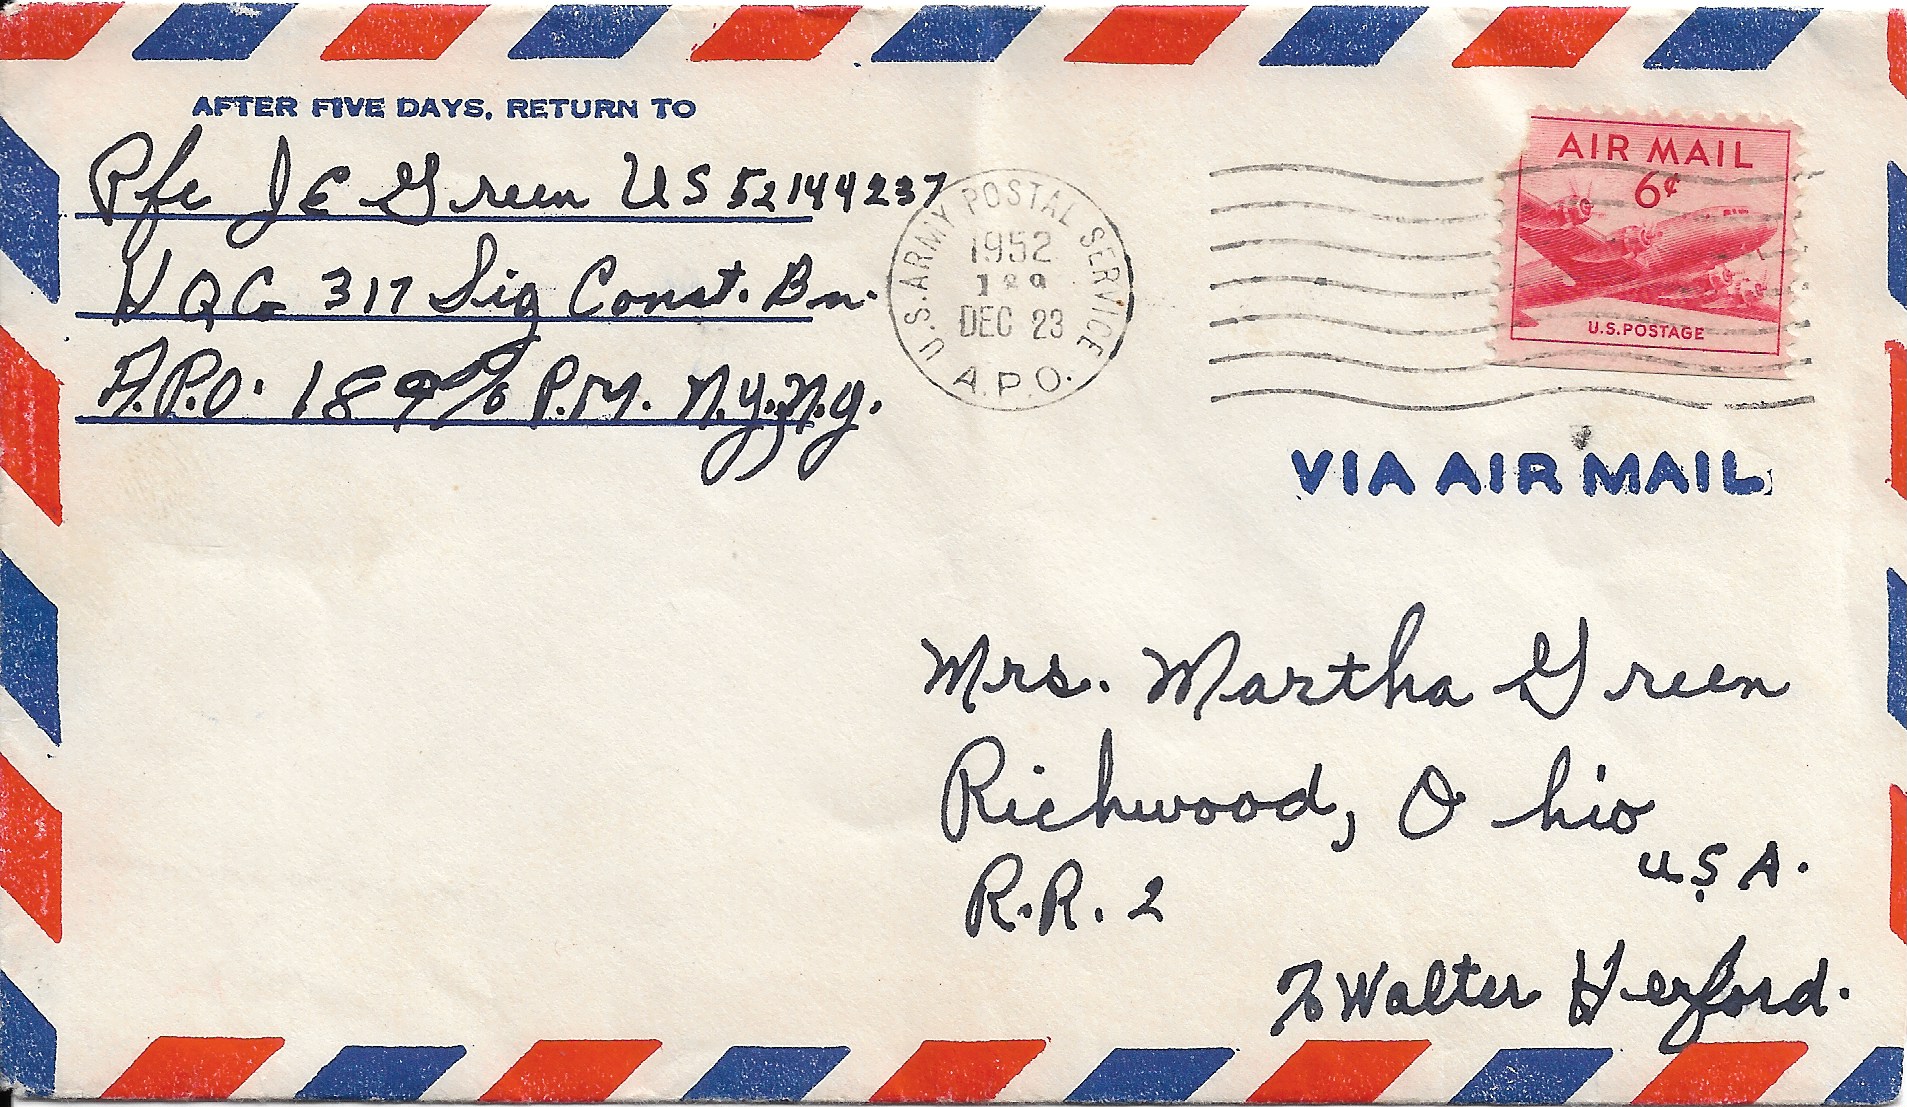 AFTER FIVE DAYS, RETURN TO
Pfc J E Green US 52144237
HQ Co 317 Sig Const. Bn.
A.P.O. 189 c/o P.M. N.Y., N.Y.
U.S. ARMY POSTAL SERVICE
1952
DEC 23
A.P.O.
AIR MAIL
6¢
U.S. POSTAGE
VIA AIR MAIL
Mrs. Martha Green
Richwood, Ohio
U.S.A.
R.R. 2
c/o Walter Herford.